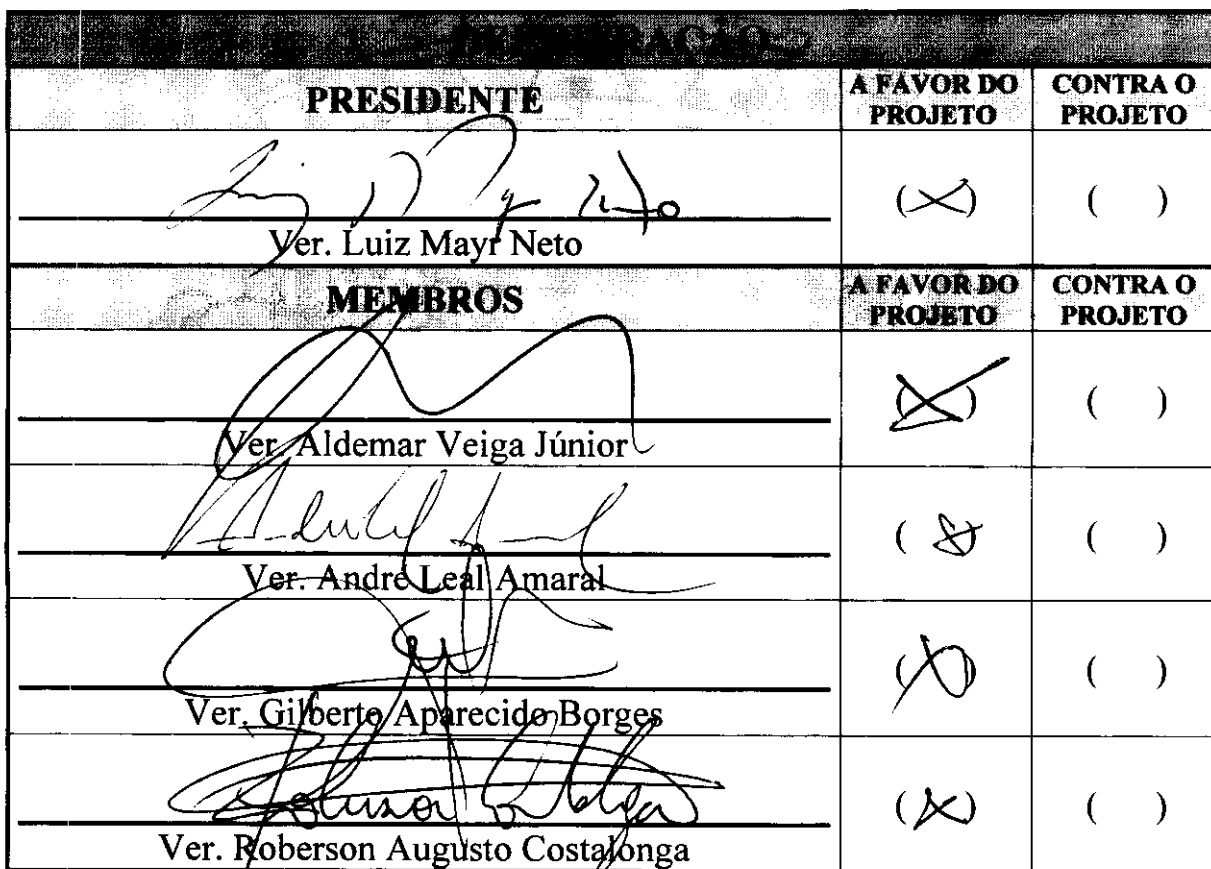 DELIBERAÇÃO
PRESIDENTE A FAVOR DO PROJETO CONTRA O PROJETO
(X) ( )
Ver. Luiz Mayr Neto
MEMBROS A FAVOR DO PROJETO CONTRA O PROJETO
(X) ( )
Ver. Aldemar Veiga Júnior
(X) ( )
Ver. André Leal Amaral
(X) ( )
Ver. Gilberto Aparecido Borges
(X) ( )
Ver. Roberson Augusto Costalonga